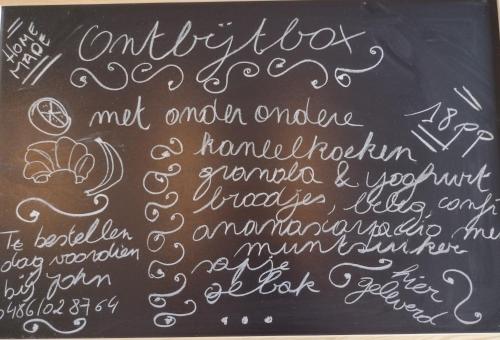 HOME
MADE
Ontbijtbox
met onder ondere
18 pp
kaneelkoeken
granola & yoghurt
broodjes, beleg, confi
ananascarpaccio me
muntsuiker
sapje
gebak
...
Te bestellen
dag voordien
bij john
0486/028764
hier
geleverd